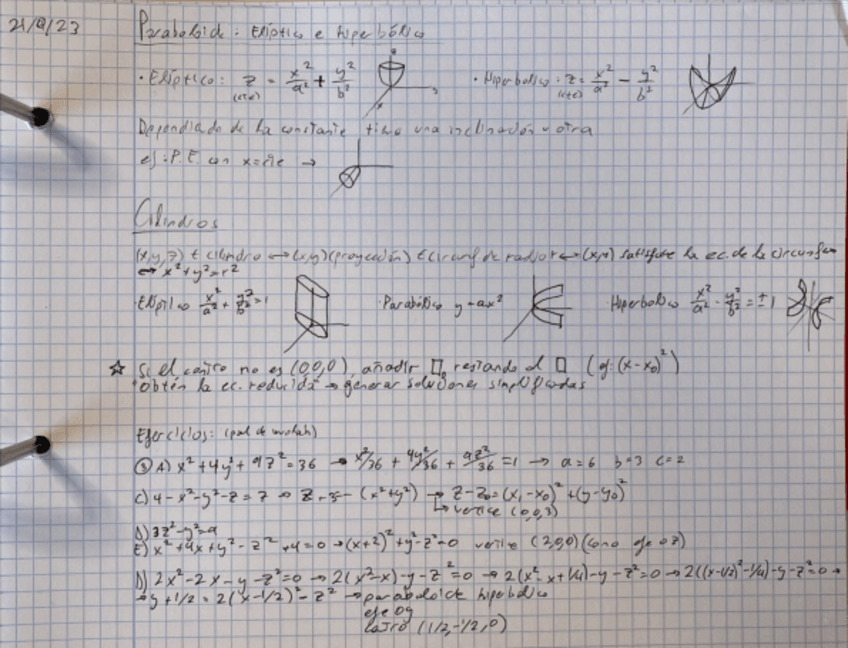 21/9/23
Paraboloide: Elíptico e hiperbólico
· Elíptico: z = x²/a² + y²/b² · Hiperbolico: z = x²/a² - y²/b²
(cte) (cte)
Dependiendo de la constante tiene una inclinación u otra
ej: P.E. con x=cte →
Cilindros
(x,y,z) ∈ cilindro ↔ (x,y) (proyección) ∈ circunf de radio r ↔ (x,y) satisface la ec. de la circunfer
↔ x²+y²=r²
· Elíptico x²/a² + y²/b² = 1 · Parabólico y=ax² · Hiperbolico x²/a² - y²/b² = ±1
☆ Si el centro no es (0,0,0), añadir □₀ restando al □ (ej: (x-x₀)²)
Obtén la ec. reducida → generar soluciones simplificadas
Ejercicios:
③ A) x²+4y²+9z²=36 → x²/36 + 4y²/36 + 9z²/36 = 1 → a=6 b=3 c=2
C) 4-x²-y²-z= → z-z₀=(x₁-x₀)²+(y-y₀)²
↳ vertice (0,0,3)
D) 3z²-y²=9
E) x²+4x+y²-z²+4=0 → (x+2)²+y²-z²=0 vertice (2,0,0) (cono eje oz)
D) 2x²-2x-y-z²=0 → 2(x²-x)-y-z²=0 → 2(x²-x+1/4)-y-z²=0 → 2((x-1/2)²-1/4)-y-z²=0 →
→ y+1/2 = 2(x-1/2)²-z² → paraboloide hiperbolico
eje oy
centro (1/2,-1/2,0)